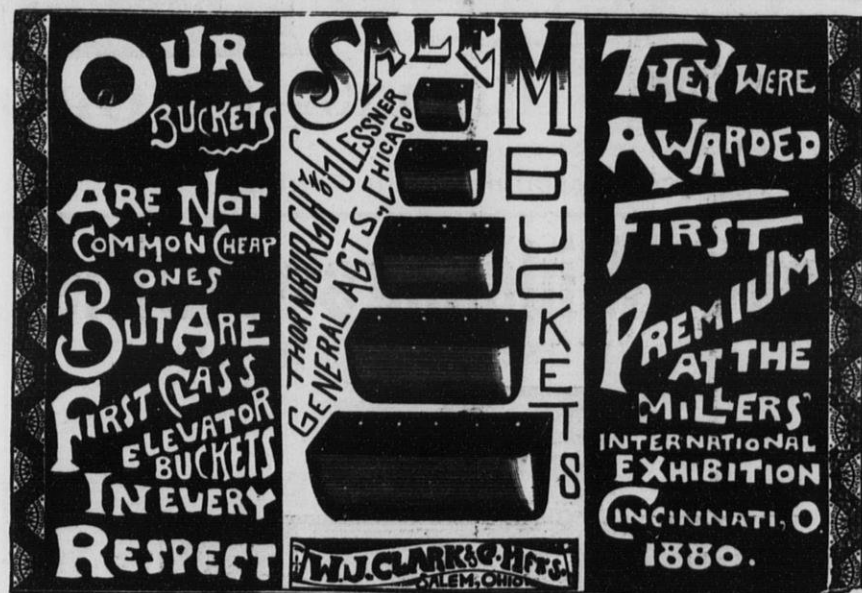 OUR
BUCKETS
ARE NOT
COMMON CHEAP
ONES
BUT ARE
FIRST CLASS
ELEVATOR
BUCKETS
IN EVERY
RESPECT
SALEM
BUCKETS
THORNBURGH AND GLESSNER
GENERAL AGTS., CHICAGO
W.J. CLARK & C. MFRS.
SALEM, OHIO
THEY WERE
AWARDED
FIRST
PREMIUM
AT THE
MILLERS'
INTERNATIONAL
EXHIBITION
CINCINNATI, O.
1880.